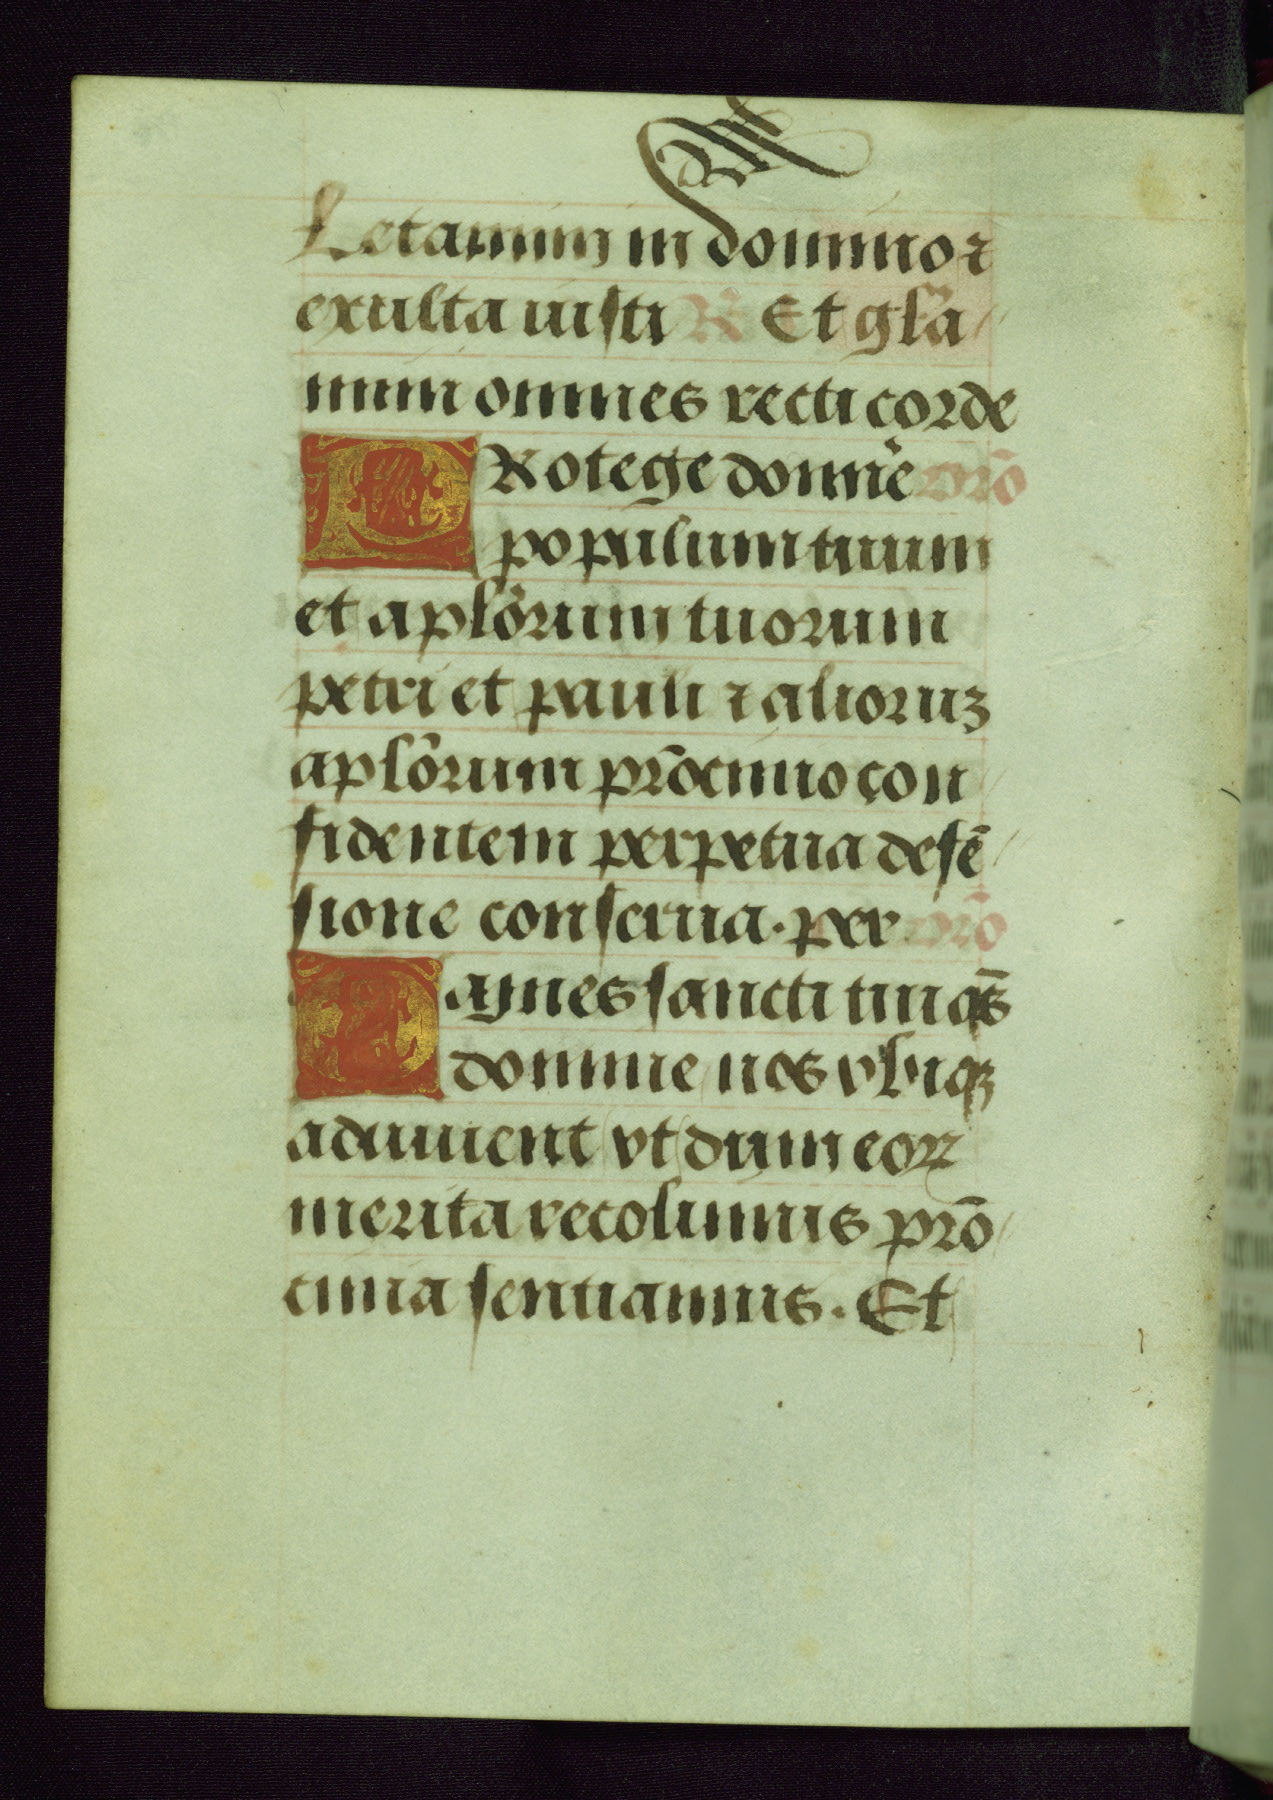 Letamini in domino ⁊
exulta iusti R Et gl̃a
mini omnes recti corde
PRotege domne͂ orõ
populum tuum
et aplõrum tuorum
petri et pauli ⁊ alioruꝫ
aplõrum prõcinio con
fidentem perpetua defẽ
sione conserua. per orõ
Omnes sancti tui qs̃
domine nos vbiqꝫ
adiuuent vt dum eoꝝ
merita recolimus prõ
cinia sentiamus. Et